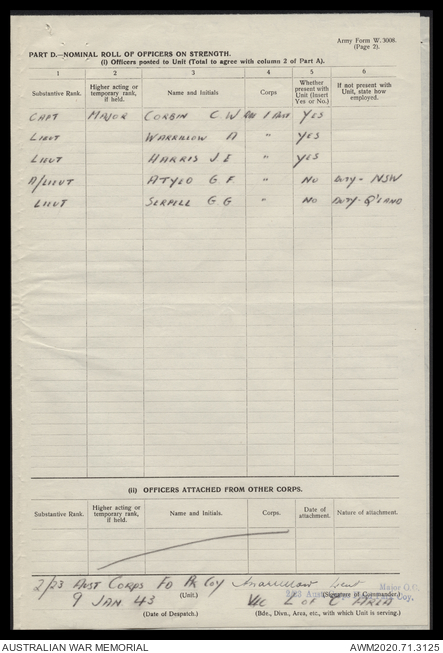 Army Form W. 3008.
(Page 2).
PART D.—NOMINAL ROLL OF OFFICERS ON STRENGTH.
(i) Officers posted to Unit (Total to agree with column 2 of Part A).
1 2 3 4 5 6
Substantive Rank. Higher acting or temporary rank, if held. Name and Initials Corps Whether present with Unit (Insert Yes or No.) If not present with Unit, state how employed.
CAPT MAJOR CORBIN C W YES
LIEUT WARRILOW A " YES
LIEUT HARRIS J E " YES
A/LIEUT ATYEO G F " NO DUTY - NSW
LIEUT SERPELL G G " NO DUTY - Q'LAND
(ii) OFFICERS ATTACHED FROM OTHER CORPS.
Substantive Rank. Higher acting or temporary rank, if held. Name and Initials. Corps. Date of attachment. Nature of attachment.
2/23 AUST CORPS FD PK COY AWarrilow Lieut
Major O.C.
(Unit.) (Signature of Commander.)
9 JAN 43 VIC L OF C AREA
(Date of Despatch.) (Bde., Divn., Area, etc., with which Unit is serving.)
AUSTRALIAN WAR MEMORIAL AWM2020.71.3125